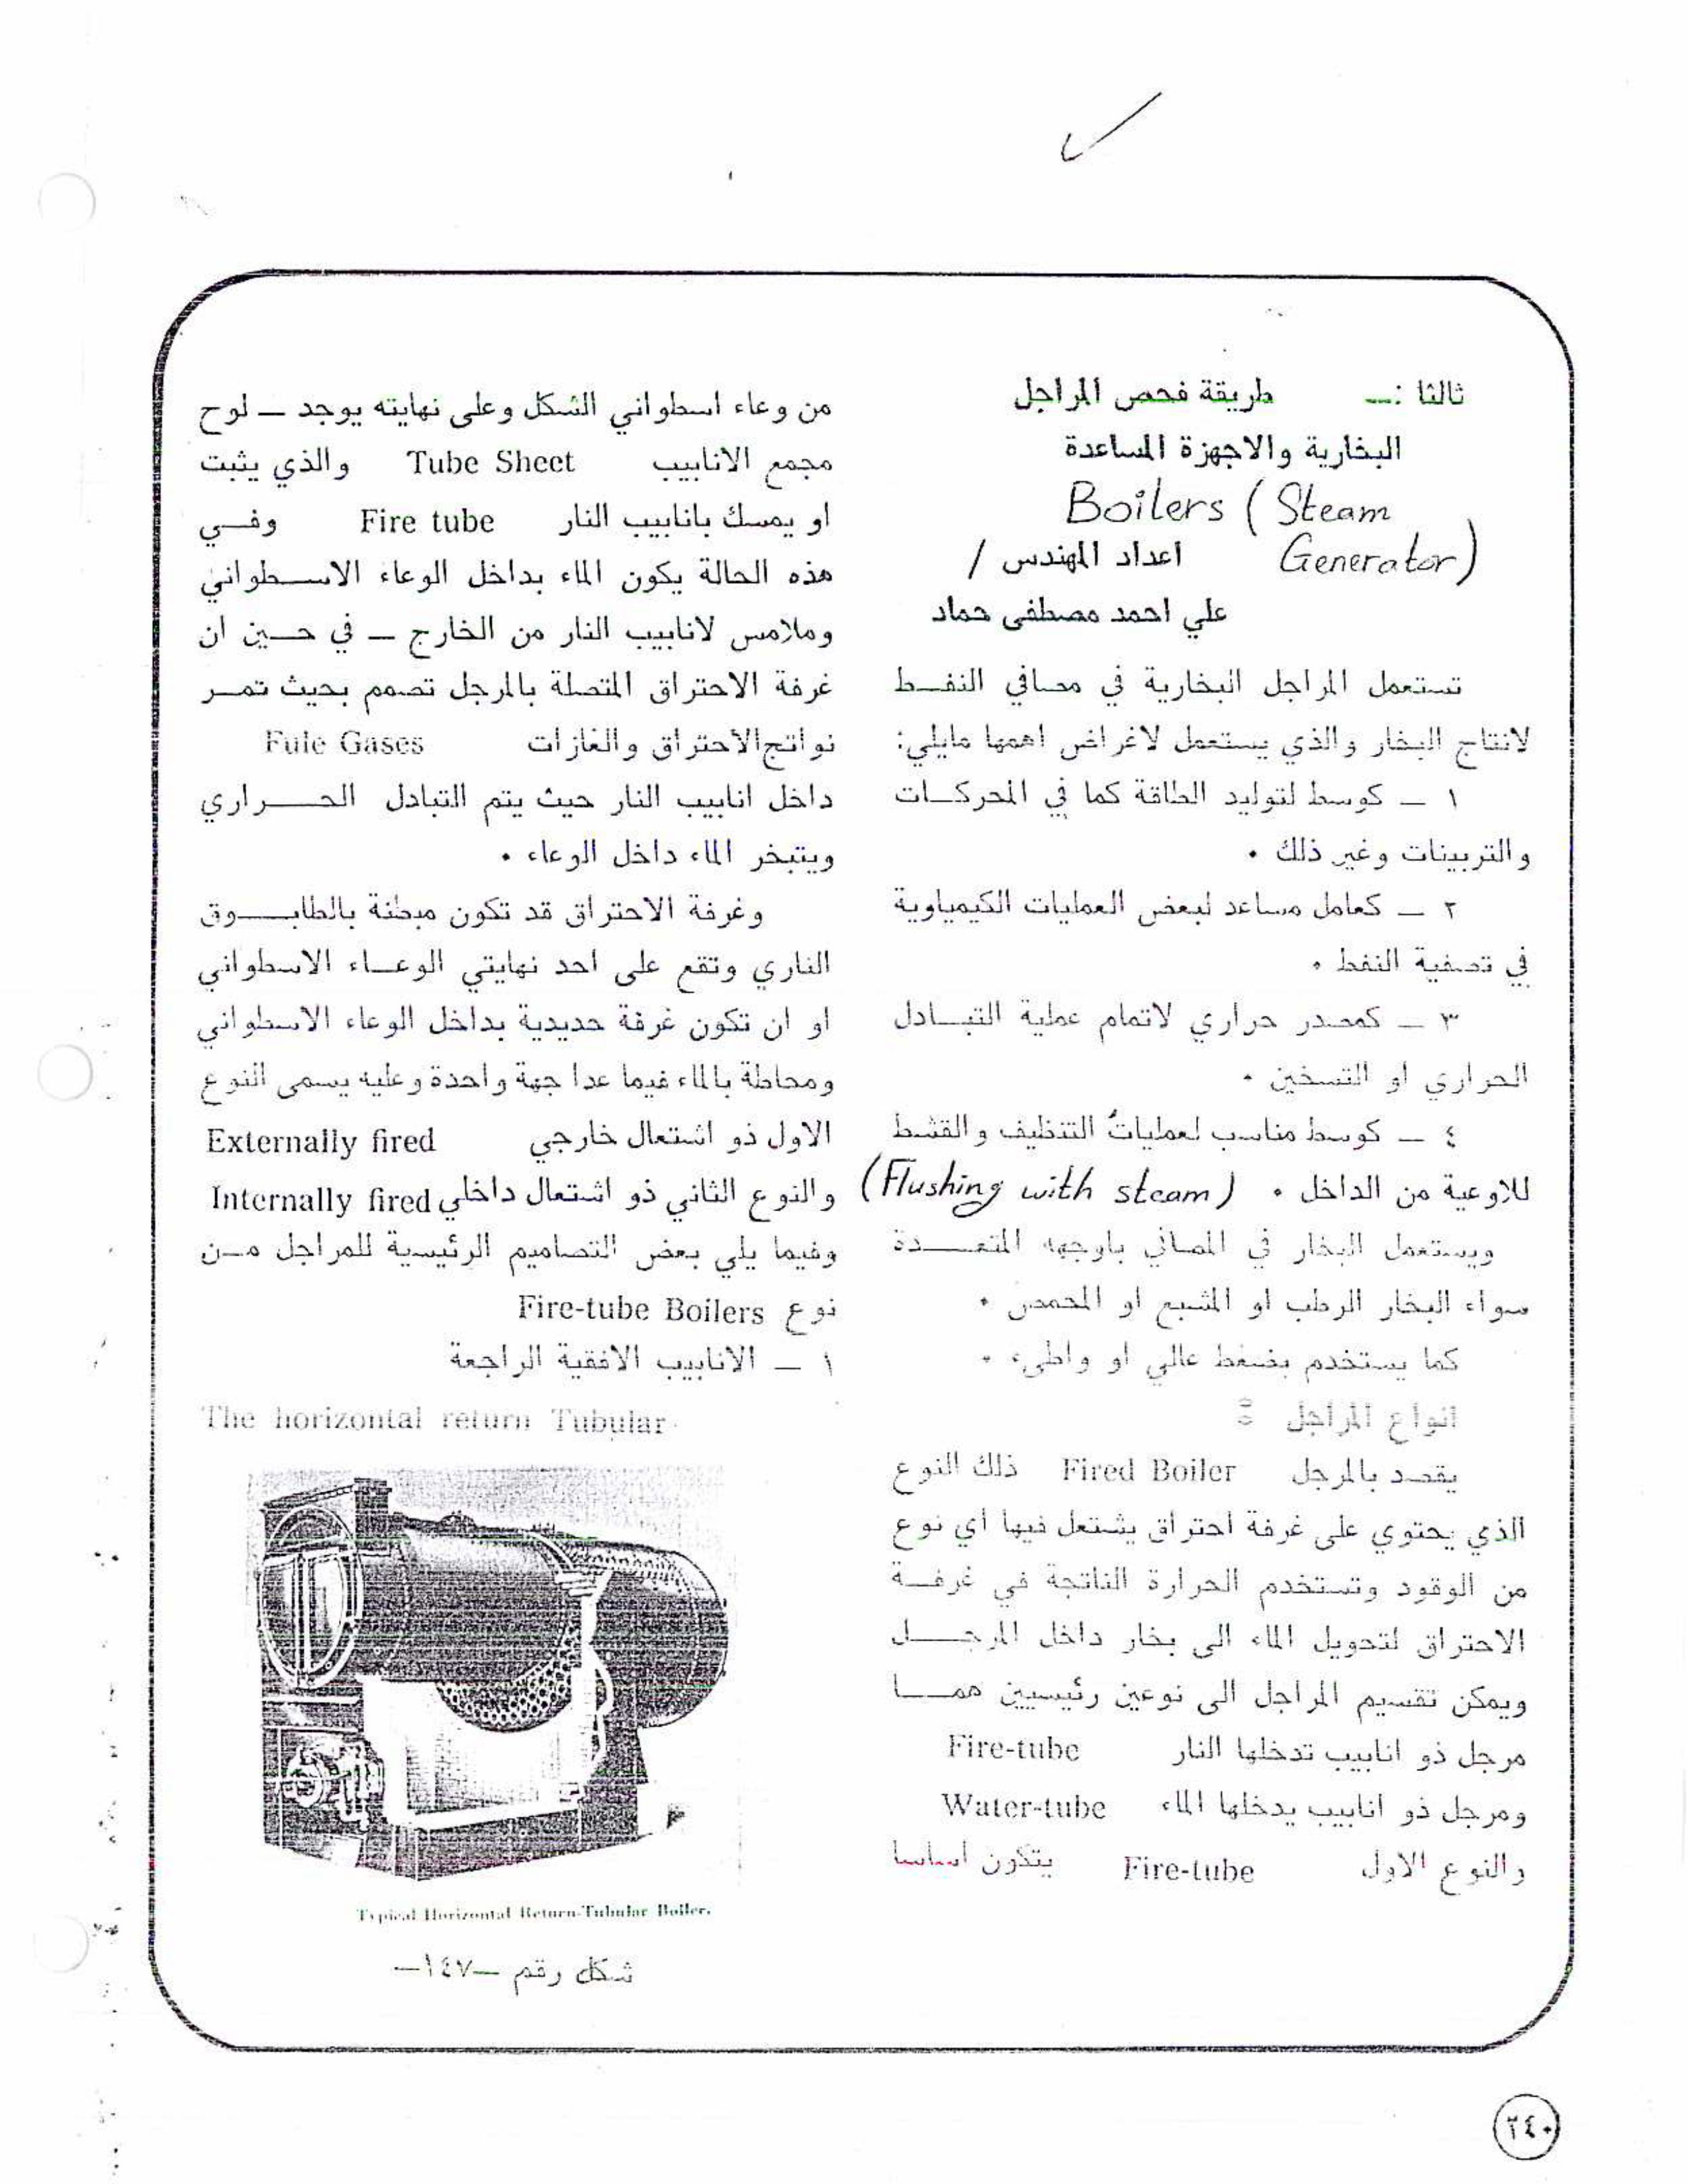 ثالثا :ــ طريقة فحص المراجل
البخارية والاجهزة المساعدة
Boilers (Steam
Generator)
اعداد المهندس /
علي احمد مصطفى حماد
تستعمل المراجل البخارية في مصافي النفـط
لانتاج البخار والذي يستعمل لاغراض اهمها مايلي:
١ ــ كوسط لتوليد الطاقة كما في المحركـات
والتربينات وغير ذلك ٠
٢ ــ كعامل مساعد لبعض العمليات الكيمياوية
في تصفية النفط ٠
٣ ــ كمصدر حراري لاتمام عملية التبـادل
الحراري او التسخين ٠
٤ ــ كوسط مناسب لعمليات التنظيف والقشط
للاوعية من الداخل ٠ (Flushing with steam)
ويستعمل البخار في المصافي باوجهه المتعـددة
سواء البخار الرطب او المشبع او المحمص ٠
كما يستخدم بضغط عالي او واطىء ٠
انواع المراجل :
يقصد بالمرجل Fired Boiler ذلك النوع
الذي يحتوي على غرفة احتراق يشتعل فيها اي نوع
من الوقود وتستخدم الحرارة الناتجة في غرفـة
الاحتراق لتحويل الماء الى بخار داخل المرجـل
ويمكن تقسيم المراجل الى نوعين رئيسيين همـا
مرجل ذو انابيب تدخلها النار Fire-tube
ومرجل ذو انابيب يدخلها الماء Water-tube
والنوع الاول Fire-tube يتكون اساسا
من وعاء اسطواني الشكل وعلى نهايته يوجد ــ لوح
مجمع الانابيب Tube Sheet والذي يثبت
او يمسك بانابيب النار Fire tube وفـي
هذه الحالة يكون الماء بداخل الوعاء الاسـطواني
وملامس لانابيب النار من الخارج ــ في حـين ان
غرفة الاحتراق المتصلة بالمرجل تصمم بحيث تمـر
نواتج الاحتراق والغازات Fule Gases
داخل انابيب النار حيث يتم التبادل الحـراري
ويتبخر الماء داخل الوعاء ٠
وغرفة الاحتراق قد تكون مبطنة بالطابـوق
الناري وتقع على احد نهايتي الوعـاء الاسطواني
او ان تكون غرفة حديدية بداخل الوعاء الاسطواني
ومحاطة بالماء فيما عدا جهة واحدة وعليه يسمى النوع
الاول ذو اشتعال خارجي Externally fired
والنوع الثاني ذو اشتعال داخلي Internally fired
وفيما يلي بعض التصاميم الرئيسية للمراجل مـن
نوع Fire-tube Boilers
١ ــ الانابيب الافقية الراجعة
The horizontal return Tubular
Typical Horizontal Return-Tubular Boiler.
شكل رقم ــ١٤٧ــ
٢٤٠